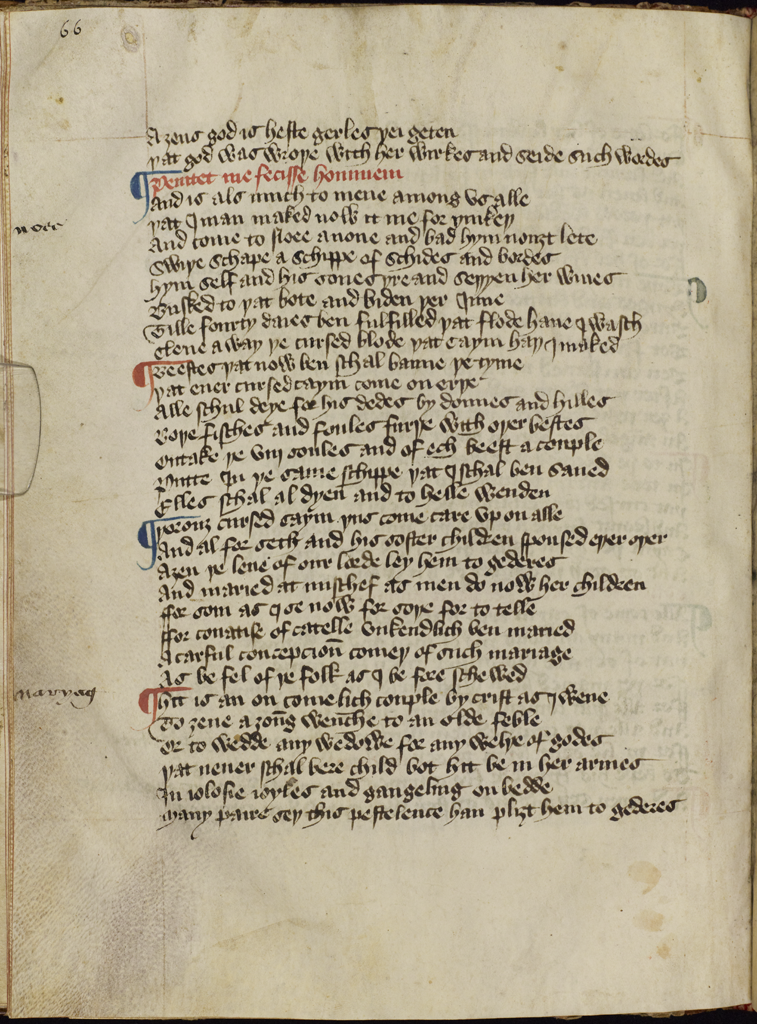 66
Aȝens god is heste gerles þei geten
Þat god was wroþe with her werkes and seide such wordes
¶ Penitet me fecisse hominem
And is als much to mene among vs alle
Þat I man maked now it me for þinkeþ
And come to Noee anone and bad hym nouȝt lete
Swiþe schape a schippe of schides and bordes
Hym self and his sones þre and seþþen her wiues
Busked to þat bote and biden þer Inne
Tille fourty daies ben fulfilled þat flode haue I wasch
Clene away þe cursed blode þat caym haþ I maked
¶ Beestes þat now ben schal banne þe tyme
Þat euer cursed caym come on erþe
Alle schul deye for his dedes by dounes and hilles
Boþe fisches and foules furþe with oþer bestes
Outake þe viii soules and of ech beest a couple
Putte In þe same schippe þat I schal ben saued
Elles schal al dyen and to helle wenden
¶ Þorouȝ cursed caym þus come care vp on alle
And al for seth and his soster children spoused eyer oþer
Aȝen þe lene of our lorde ley hem to gederes
And maried at mischef as men do now her children
ffor som as I se now for soþe for to telle
ffor couatise of catelle vnkendlich ben maried
A carful concepcioun comeþ of such mariage
As be fel of þe folk as I be fore schewed
¶ Hit is an on comelich couple by crist as I wene
To ȝeue a ȝong wenche to an olde feble
Or to wedde any wedowe for any welþe of godes
Þat neuer schal bere child bot hit be in her armes
In ielosie ioyles and gangeling on bedde
Many paire seþ this pestelence han pliȝt hem to gederes
noee
maryag